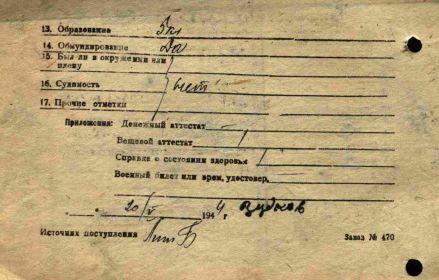 13. Образование 5 кл
14. Обмундирование Да
15. Был ли в окружении или
плену
16. Судимость нет
17. Прочие отметки
Приложения: Денежный аттестат
Вещевой аттестат
Справка о состоянии здоровья
Военный билет или врем. удостовер.
20/V 1944 г.
Источник поступления
Заказ № 470